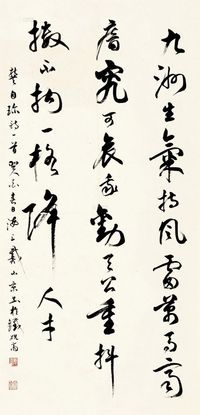 九洲生氣恃風雷萬馬齊
喑究可哀我勸天公重抖
擻不拘一格降人才
龔自珍詩一首 春日 戴小京